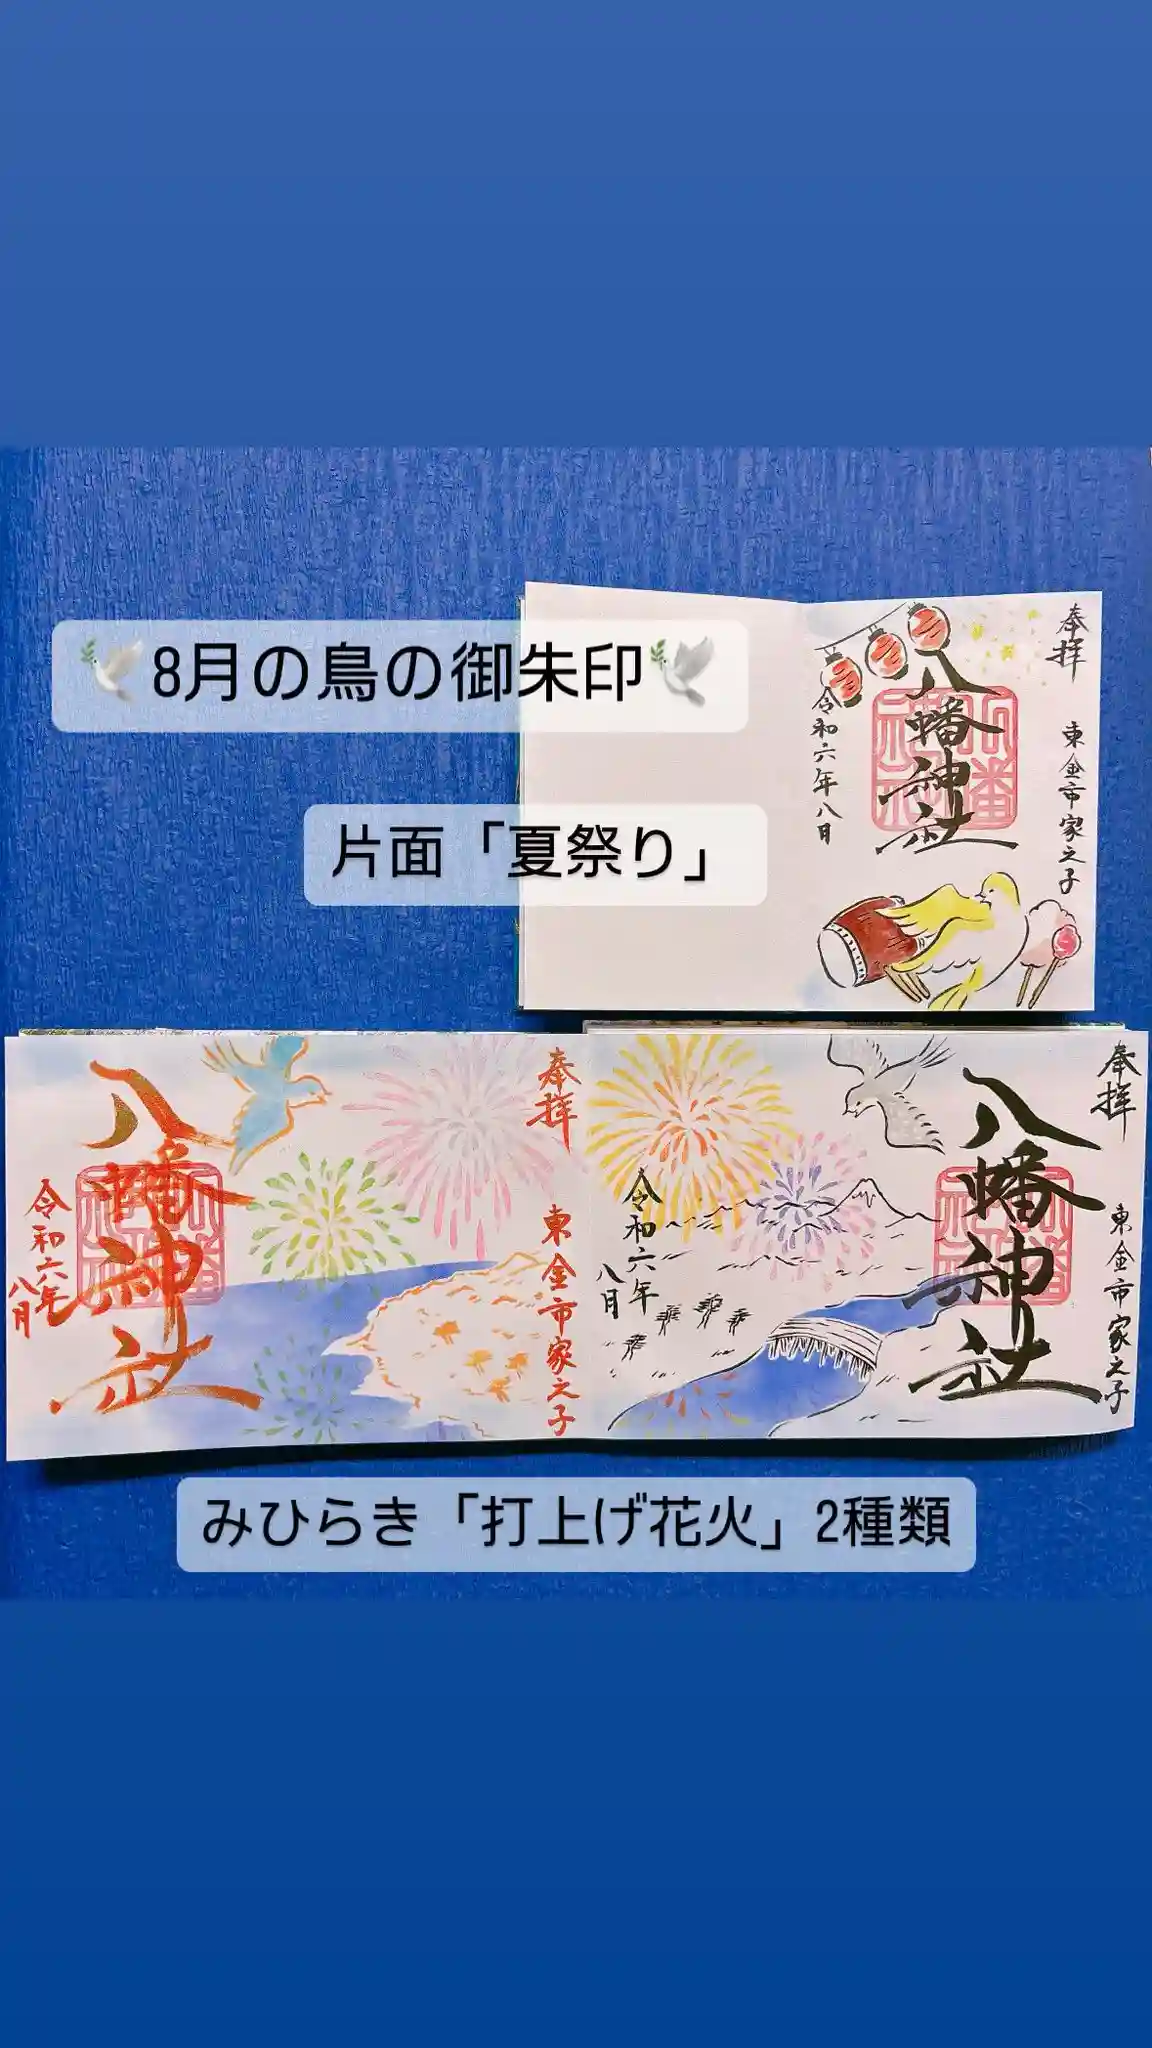 🕊8月の鳥の御朱印🕊
片面「夏祭り」
奉拝
東金市家之子
八幡神社
令和六年八月
奉拝
東金市家之子
八幡神社
令和六年
八月
奉拝
東金市家之子
八幡神社
令和六年
八月
みひらき「打上げ花火」2種類